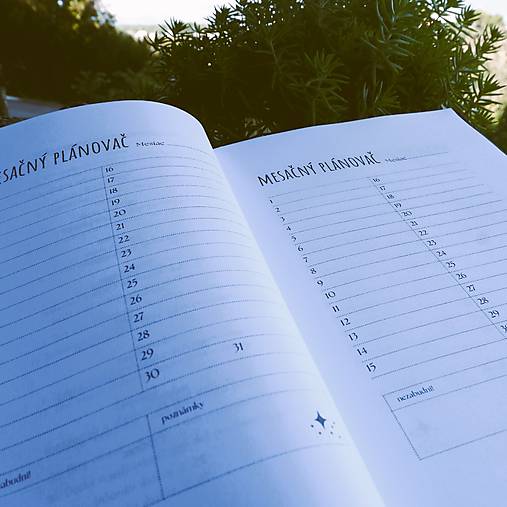 MESAČNÝ PLÁNOVAČ Mesiac
16
17
18
19
20
21
22
23
24
25
26
27
28
29 31
30
poznámky
MESAČNÝ PLÁNOVAČ Mesiac
1 16
2 17
3 18
4 19
5 20
6 21
7 22
8 23
9 24
10 25
11 26
12 27
13 28
14 29
15 30
nezabudni!